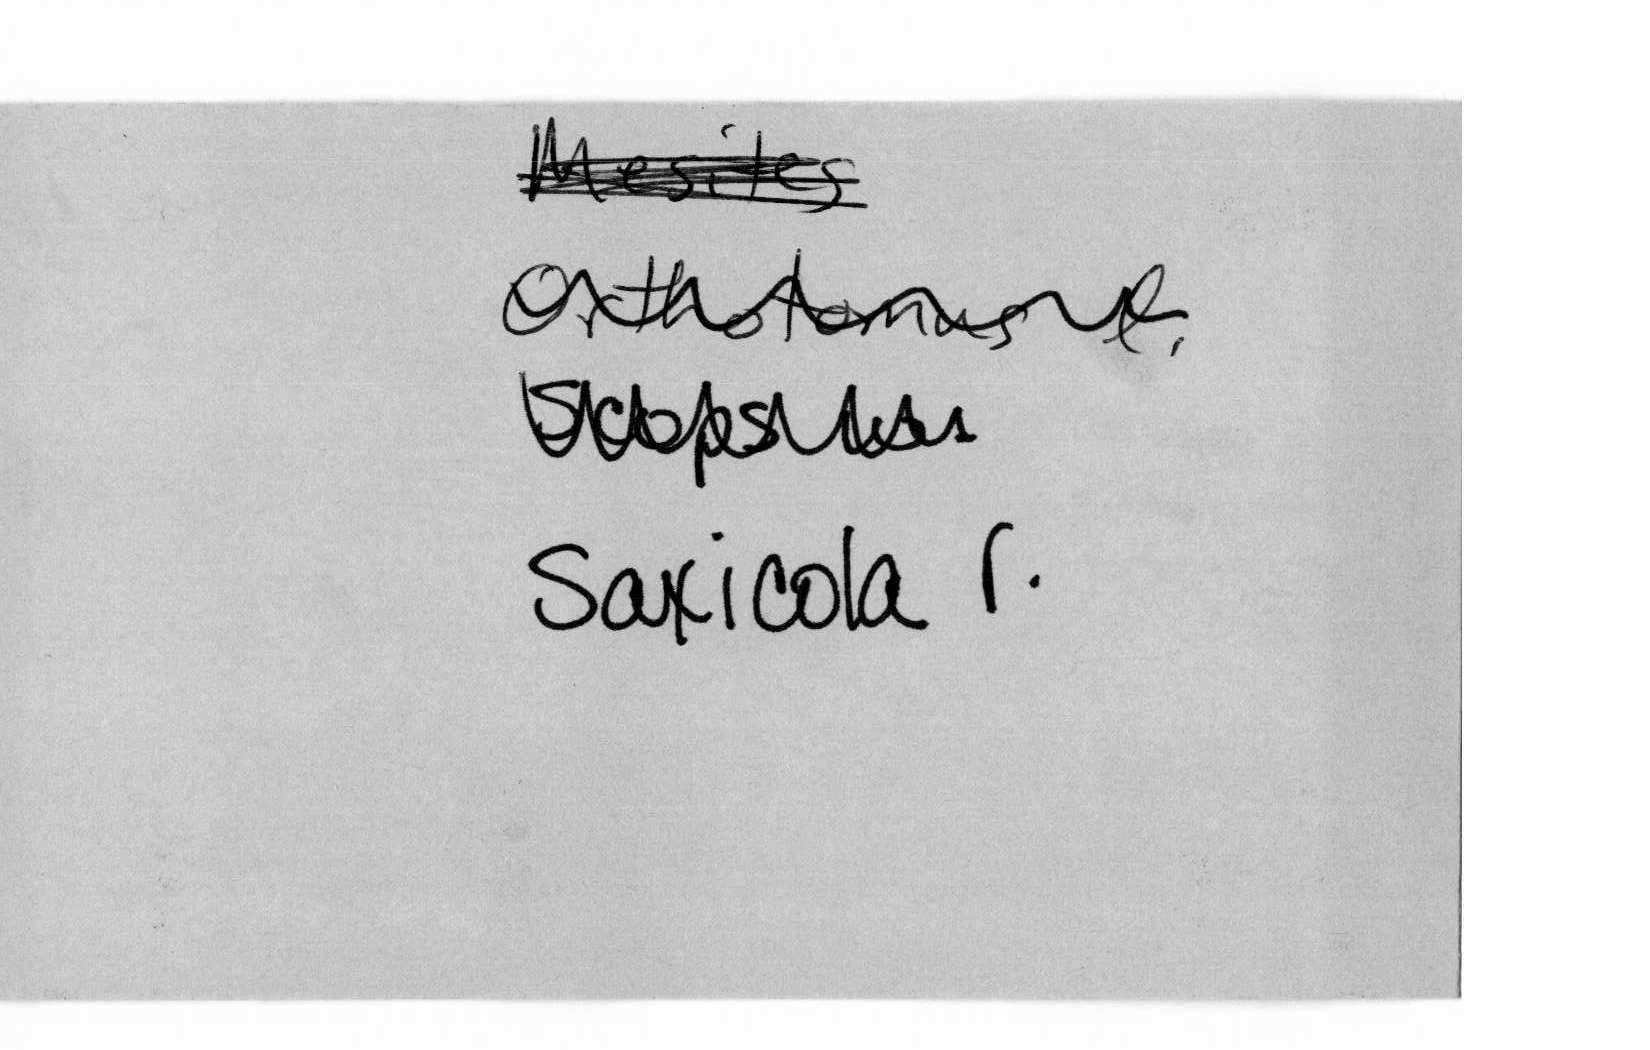 Mesites
Orthotomus
Scops
Saxicola r.